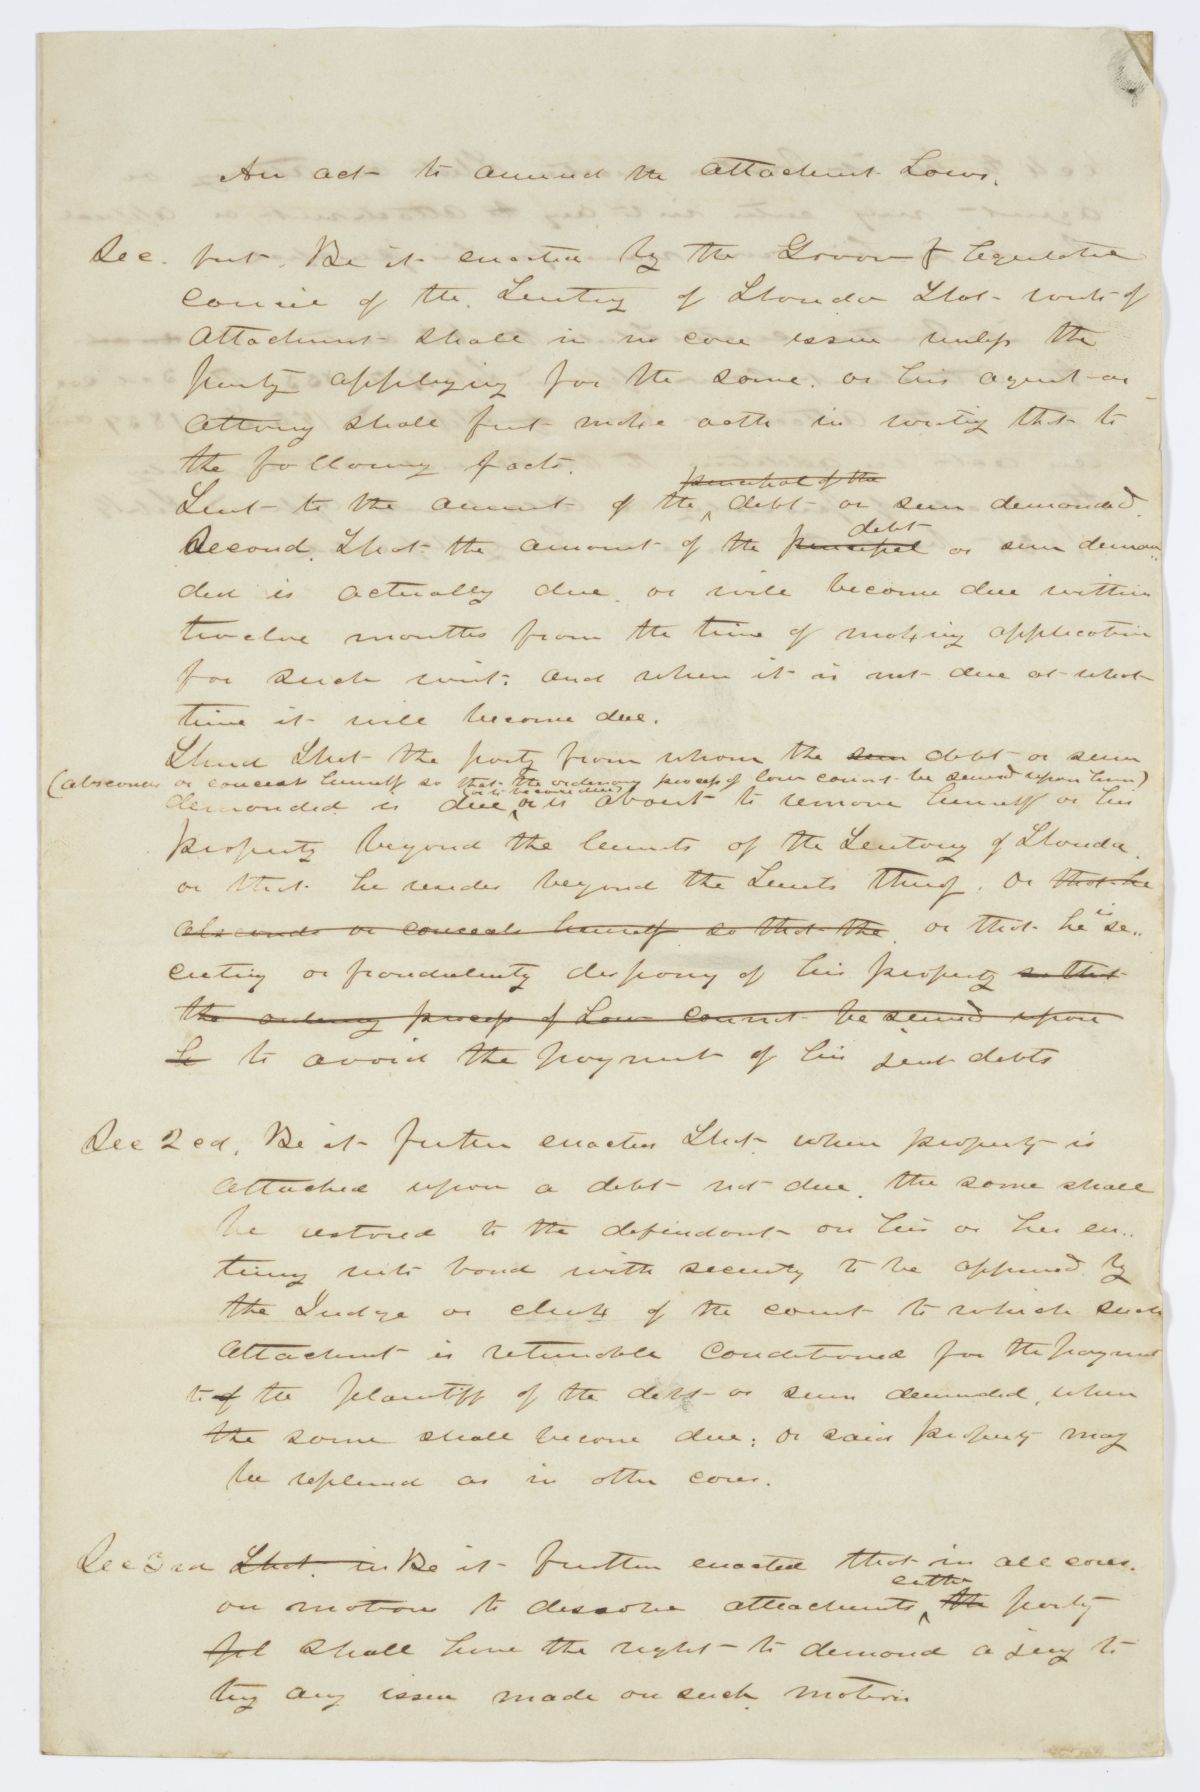 An act to amend the attachment Laws.
Sec. first. Be it enacted by the Govnor & legislative
Council of the Teritory of Florida That writs of
attachment shall in no case issue unless the
party applying for the same. or his agent or
attorny shall first make oath in writig that to
the following facts.
principal of the
First to the amount of the debt or sum demanded.
debt
Second. That the amount of the principal or sum deman..
ded is actually due. or will become due within
twelve months from the time of making application
for such writ: and when it is not due at what
time it will become due.
Third That the party from whom the sum debt or sum
(absconds or conceals himself so that the ordinary process of law cannot be served upon him)
(or is to become due)
demanded is due or is about to remove himself or his
property beyond the limits of the Teritory of Florida.
or that he resides beyond the limits therof. or that he
absconds or conceals himself so that the or that he is se..
creting or fraudulently disposing of his property so that
the ordinary process of Law cannot be served upon
h to avoid the payment of his just debts
Sec 2cd. Be it further enacted That when property is
attached upon a debt not due. the same shall
be restored to the defendant on his or her en..
tering into bond with security to be approved by
the Judge or clerk of the court to which such
attachment is returnable conditioned for the payment
to of the plaintiff of the debt or sum demanded, when
the same shall become due: or said property may
be replevied as in other cases.
Sec 3rd That in Be it further enacted that in all cases.
either
on motions to dissolve attachments the party
shall have the right to demand a jury to
try any issue made on such motion